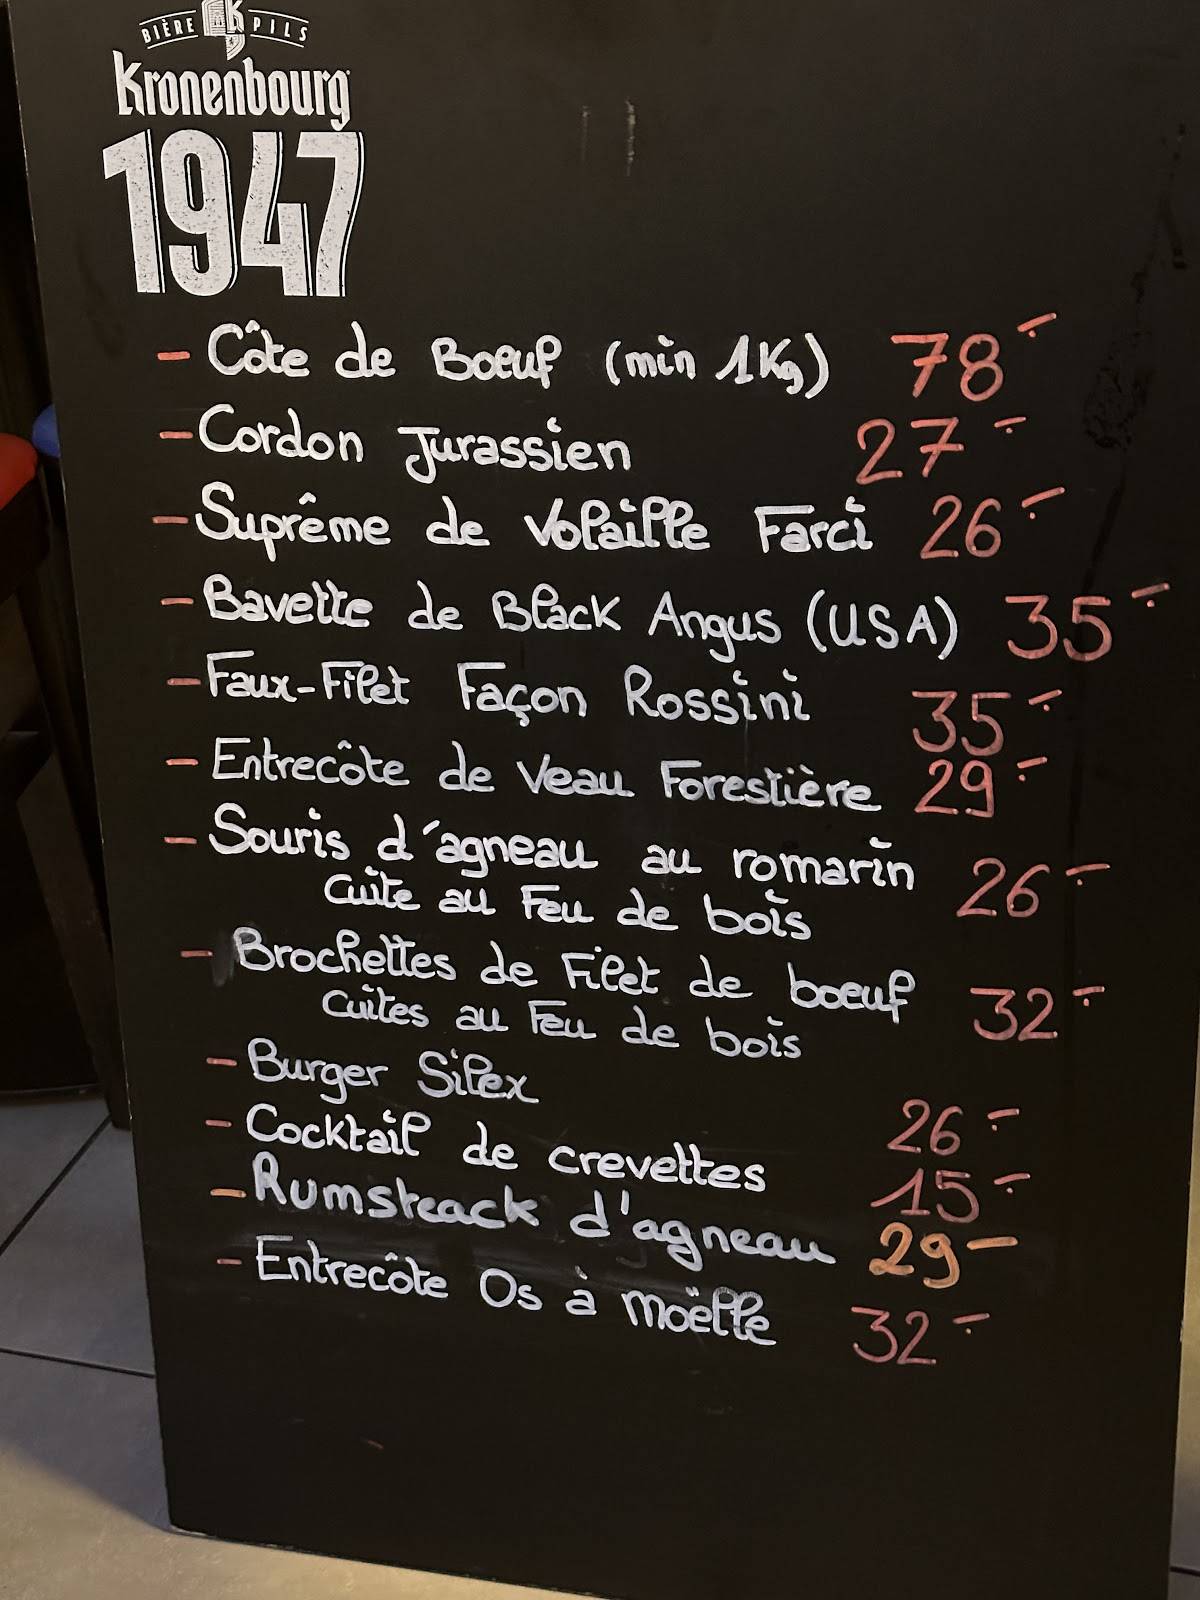 BIÈRE PILS
Kronenbourg
1947
- Côte de Boeuf (min 1Kg) 78.-
- Cordon Jurassien 27.-
- Suprême de Volaille Farci 26.-
- Bavette de Black Angus (USA) 35.-
- Faux-Filet Façon Rossini 35.-
- Entrecôte de Veau Forestière 29.-
- Souris d'agneau au romarin 26.-
cuite au Feu de bois
- Brochettes de Filet de boeuf 32.-
cuites au Feu de bois
- Burger Silex 26.-
- Cocktail de crevettes 15.-
- Rumsteack d'agneau 29-
- Entrecôte Os à Moëlle 32.-